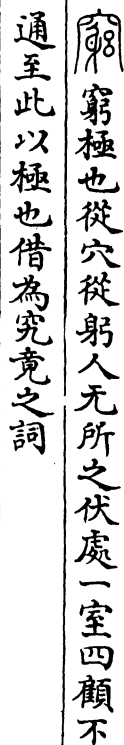 窮極也從穴從躬人无所之伏處一室四顧不
通至此以極也借為究竟之詞